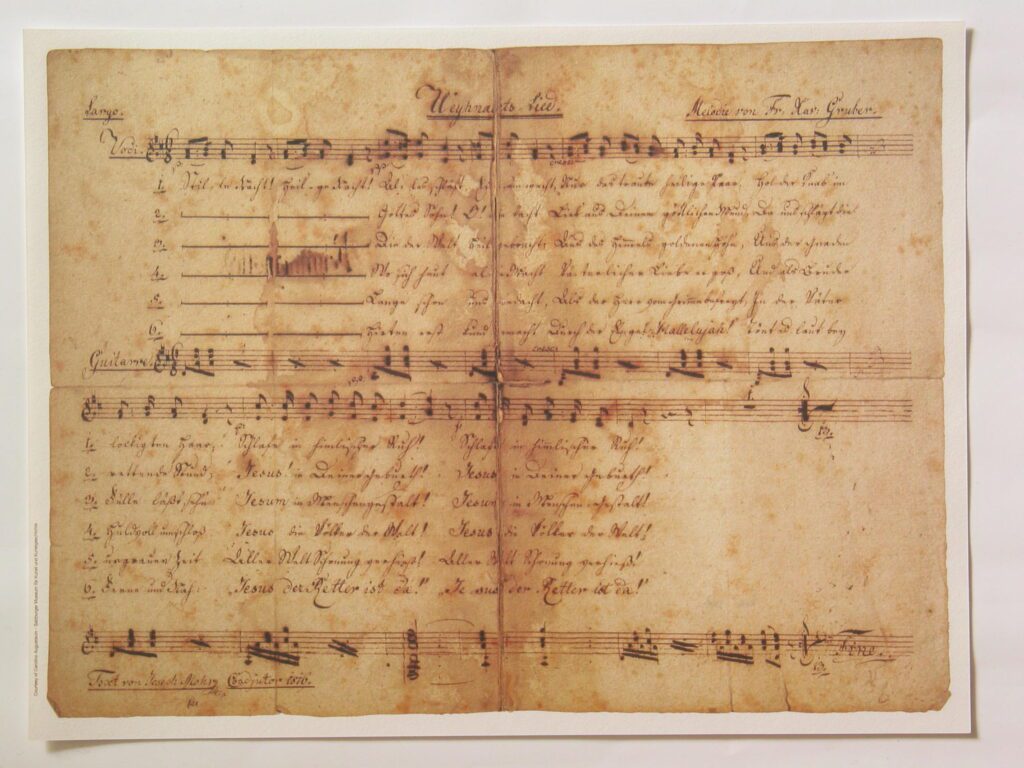 Largo. Weyhnachts-Lied. Melodie von Fr. Xav. Gruber.
Voci.
cresc:
1. Stil-le Nacht! Heil-ge Nacht! Alles schläft wacht, Nur das traute heilige Paar. Holder Knab im
2. Gottes Sohn! O! lacht Lieb aus Deinem göttlichen Mund, Da uns schlägt die
3. Die der Welt Heil gebracht; Aus des Himmels goldenen Höhn, Aus der Gnaden
4. Wo sich heut alle Macht Väterlicher Liebe ergoß, Und als Bruder
5. Lange schon uns bedacht, Als der Herr vom Grimme befreyt, In der Väter
6. Hirten erst kund gemacht Durch der Engel Hallelujah! Tönt es laut bey
Guitarre.
cresc:
1. lockigten Haar; Schlafe in himlischer Ruh! Schlafe in himlischer Ruh!
2. rettende Stund; Jesus! in Deiner Geburth! Jesus in Deiner Geburth!
3. Fülle läßt sehn Jesum in Menschengestalt! Jesum in Menschengestalt!
4. Huldvoll umschloß Jesus die Völker der Welt! Jesus die Völker der Welt!
5. urgrauer Zeit Aller Welt Schonung verhieß! Aller Welt Schonung verhieß!
6. Ferne und Nah: "Jesus der Retter ist da!" "Jesus der Retter ist da!"
Fine.
Text von Joseph Mohr Coadjutor 1816.